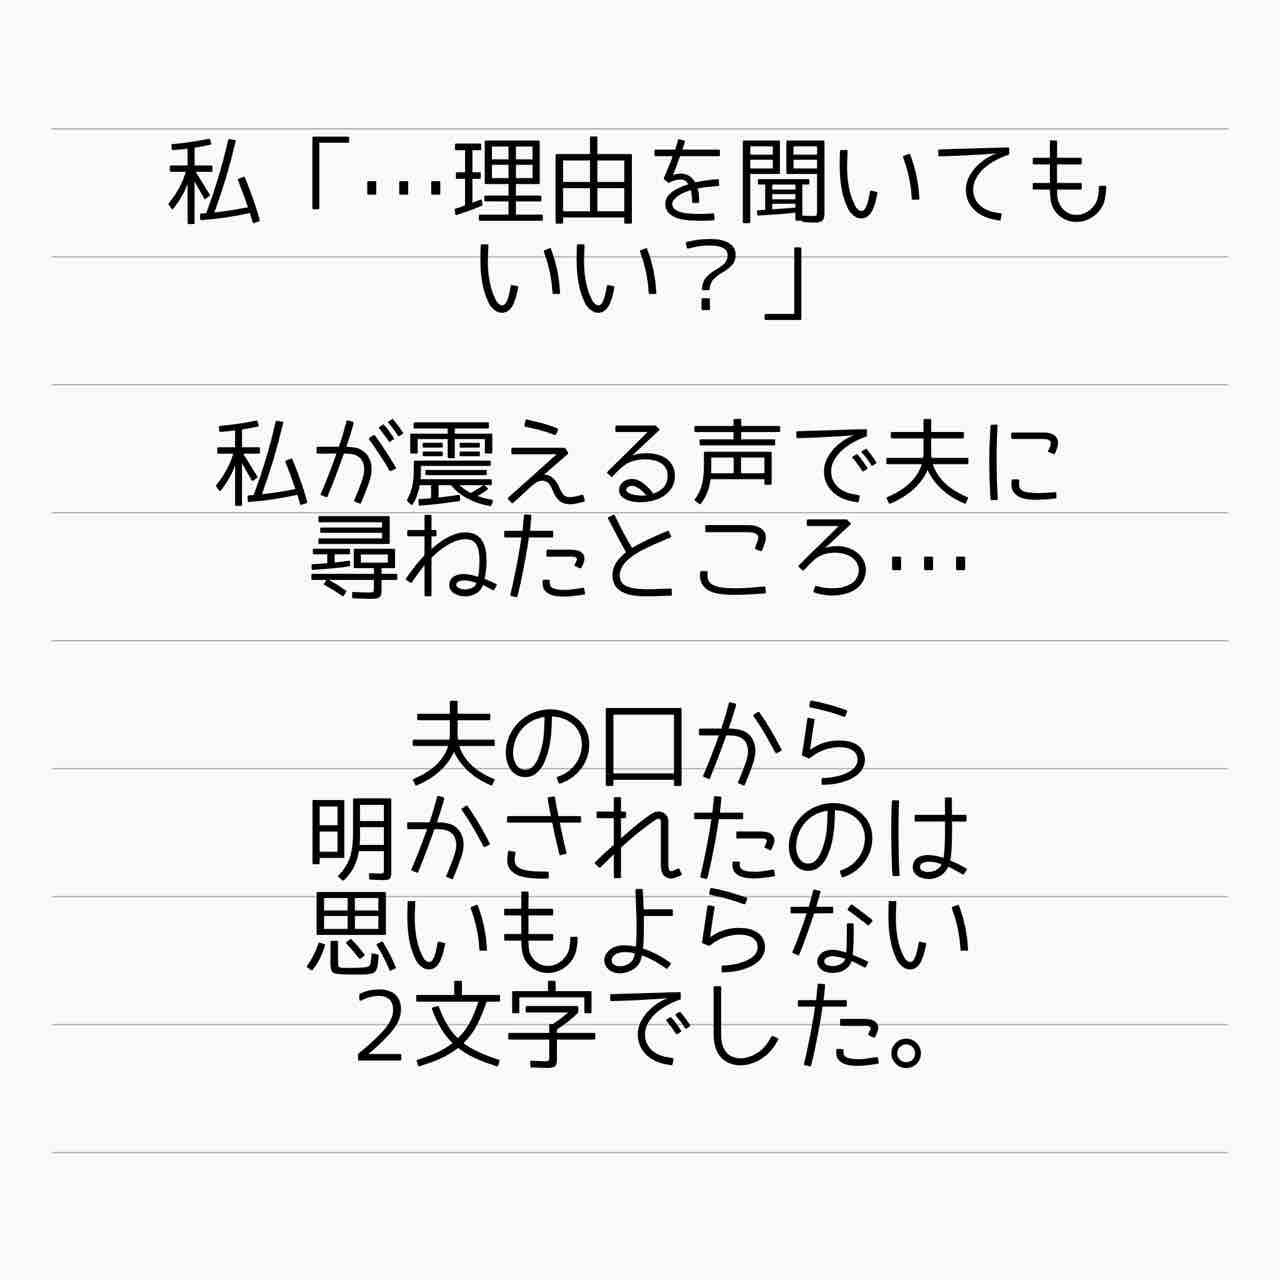 私「…理由を聞いても
いい？」
私が震える声で夫に
尋ねたところ…
夫の口から
明かされたのは
思いもよらない
2文字でした。